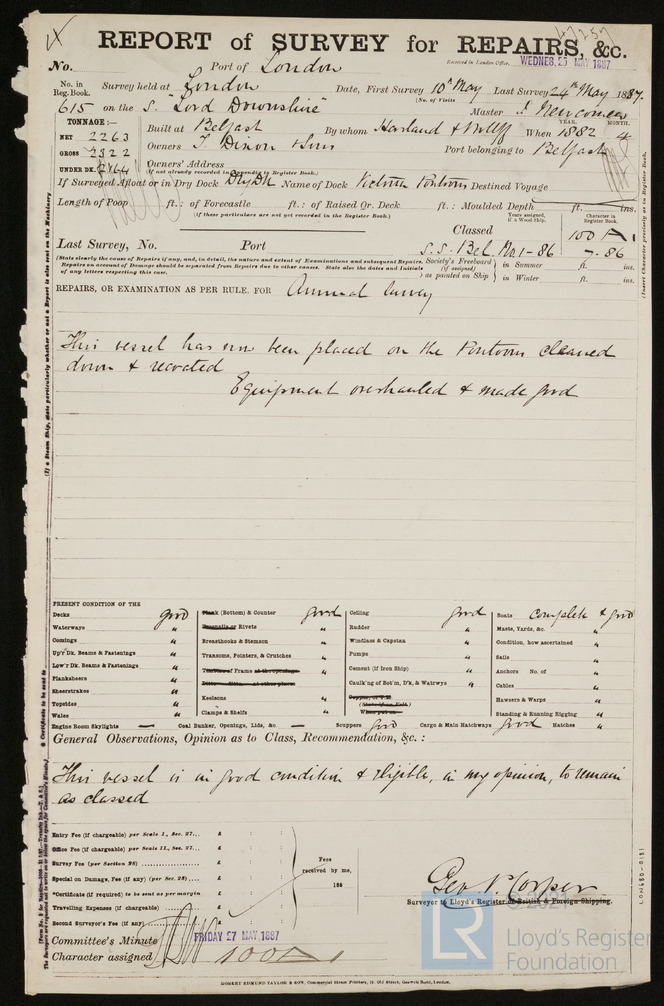 47257
REPORT of SURVEY for REPAIRS, &c.
No. Port of London Received in London Office, WEDNES. 25 MAY 1887
No. in Reg. Book. Survey held at London Date, First Survey 10th May Last Survey 24th May 1887.
(No. of Visits
615 on the S. "Lord Downshire" Master J. Newcomen
TONNAGE:— Built at Belfast By whom Harland & Wolff When 1882 YEAR. MONTH. 4
NET 2263
GROSS 2322 Owners T Dixon & Sons Port belonging to Belfast
UNDER DK. 2164 Owners' Address
(If not already recorded in Appendix to Register Book.)
If Surveyed Afloat or in Dry Dock Dry Dk Name of Dock Victoria Pontoons Destined Voyage
Length of Poop ft.: of Forecastle ft.: of Raised Qr. Deck ft.: Moulded Depth ft. ins.
(If these particulars are not yet recorded in the Register Book.)
Years assigned, if a Wood Ship. Character in Register Book.
Classed 100 A1
Last Survey, No. Port S.S. Bel. No.1-86 -.86
(State clearly the cause of Repairs if any, and, in detail, the nature and extent of Examinations and subsequent Repairs.
Repairs on account of Damage should be separated from Repairs due to other causes. State also the dates and Initials
of any letters respecting this case.
Society's Freeboard (if assigned) as painted on Ship in Summer ft. ins.
in Winter ft. ins.
REPAIRS, OR EXAMINATION AS PER RULE, FOR Annual Survey
This vessel has now been placed on the Pontoons cleaned
down & recoated
Equipment overhauled & made good
PRESENT CONDITION OF THE
Decks good
Waterways "
Comings "
Up'r Dk. Beams & Fastenings "
Low'r Dk. Beams & Fastenings "
Planksheers "
Sheerstrakes "
Topsides "
Wales "
Plank (Bottom) & Counter good
Treenails or Rivets "
Breasthooks & Stemson "
Transoms, Pointers, & Crutches "
Timbers of Frame at the openings "
Ditto Ditto at other places
Keelsons "
Clamps & Shelfs "
Ceiling good
Rudder "
Windlass & Capstan "
Pumps "
Cement (if Iron Ship) "
Caulk'ng of Bot'm, D'k, & Watrwys "
Boats complete & good
Masts, Yards, &c. "
Condition, how ascertained "
Sails "
Anchors No. of "
Cables "
Hawsers & Warps "
Standing & Running Rigging "
Engine Room Skylights — Coal Bunker, Openings, Lids, &c. — Scuppers good Cargo & Main Hatchways good Hatches "
General Observations, Opinion as to Class, Recommendation, &c. :
This vessel is in good condition & eligible, in my opinion, to remain
as classed
Entry Fee (if chargeable) per Scale I., Sec. 27... £ : :
Office Fee (if chargeable) per Scale II., Sec. 27... £ : :
Survey Fee (per Section 28) £ : :
Special on Damage, Fee (if any) (per Sec. 28)... £ : :
*Certificate (if required) to be sent as per margin £ : :
Travelling Expenses (if chargeable) £ : :
Second Surveyor's Fee (if any) £ : :
Fees received by me, 188
Geo. P. Cooper
Surveyor to Lloyd's Register of British & Foreign Shipping.
Committee's Minute FRIDAY 27 MAY 1887
Character assigned 100A1
ROBERT EDMUND TAYLOR & SON, Commercial Steam Printers, 19, Old Street, Goswell Road, London.
LR
© 2021
Lloyd's Register
Foundation